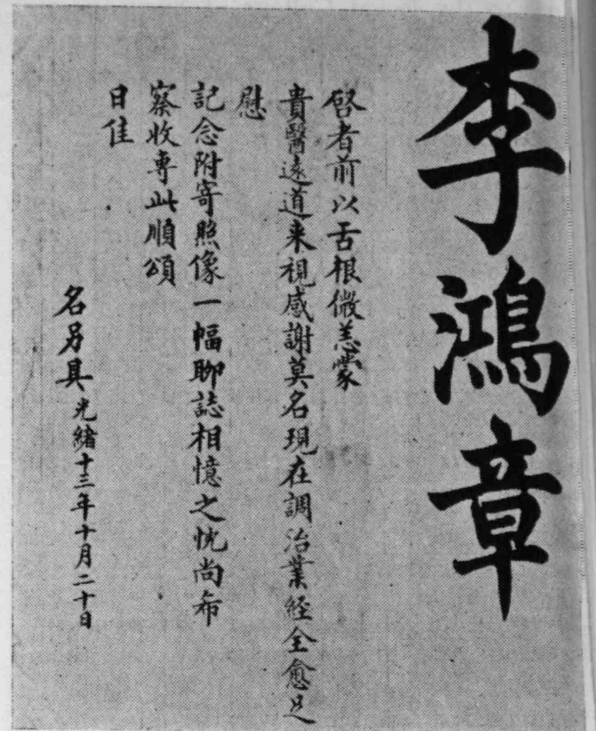 李鴻章
啓者前以舌根微恙蒙
貴醫遠道来視感謝莫名現在調治業經全愈足
慰
記念附寄照像一幅聊誌相憶之忱尚希
察收專此順頌
日佳
名另具 光緒十三年十月二十日